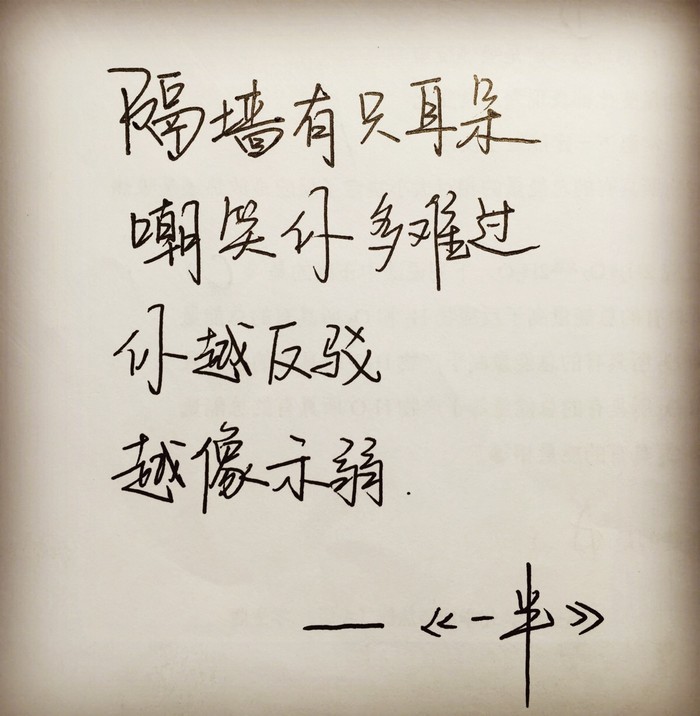 隔墙有只耳朵
嘲笑你多难过
你越反驳
越像示弱.
——《一半》